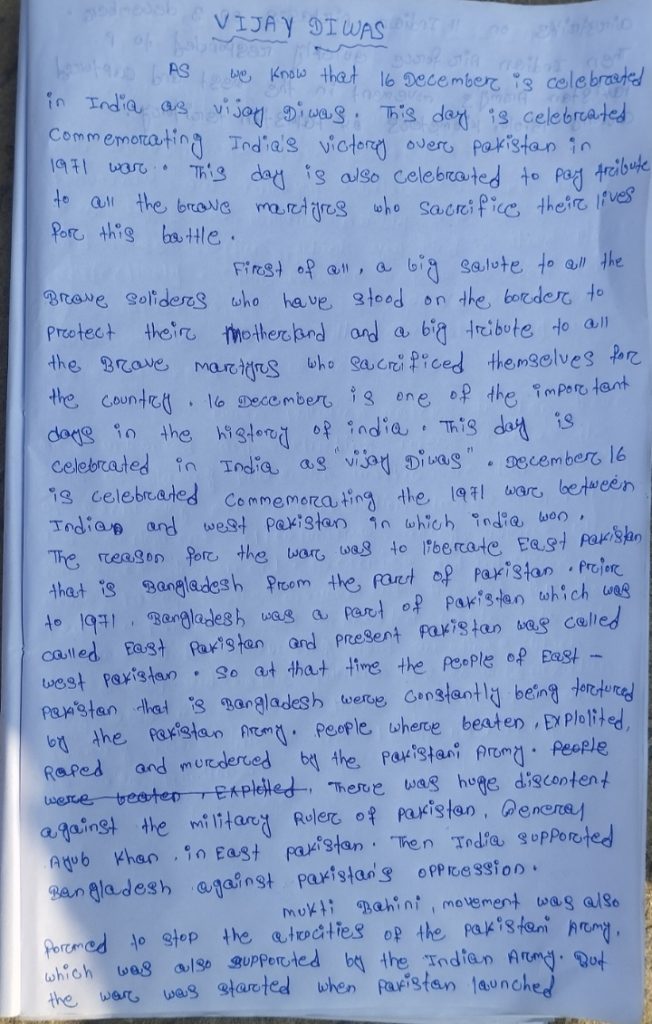 VIJAY DIWAS
AS we, know that 16 December is celebrated
in India as vijay Diwas. This day is celebrated
Commemorating India's victory over pakistan in
1971 war. This day is also celebrated to pay tribute
to all the brave martyrs who sacrifice their lives
for this battle.
First of all, a big salute to all the
Brave soliders who have stood on the border to
protect their motherland and a big tribute to all
the Brave martyrs who sacrificed themselves for
the country. 16 December is one of the important
days in the history of india. This day is
celebrated in India as "vijay Diwas". December 16
is celebrated commemorating the 1971 war between
India and west pakistan in which india won.
The reason for the war was to liberate East pakistan
that is Bangladesh from the part of pakistan. Prior
to 1971, Bangladesh was a part of pakistan which was
called East pakistan and present pakistan was called
west pakistan. so at that time the people of East -
pakistan that is Bangladesh were constantly being tortured
by the pakistan Army. people where beaten, Explolited,
Raped and murdered by the pakistani Army. People
were beaten, Exploited, There was huge discontent
against the military Ruler of pakistan, General
Ayub khan, in East pakistan. Then India supported
Bangladesh against pakistan's oppression.
mukti Bahini, movement was also
formed to stop the atrocities of the pakistani Army,
which was also supported by the Indian Army. But
the war was started when pakistan launched